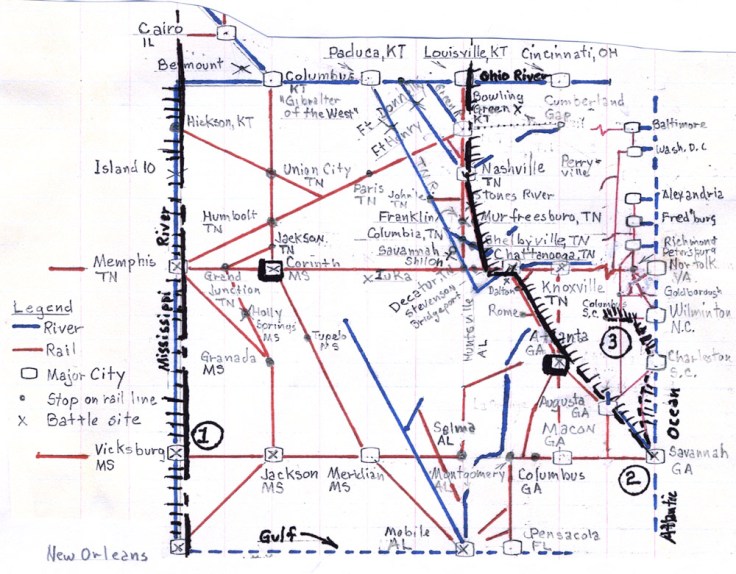 Cairo
IL
Paduca, KT
Louisville, KT
Cincinnati, OH
Belmount
Columbus
KT
"Gibralter
of the West"
Ohio River
Bowling
Green X
KT
Cumberland
Gap
Ft Donnelly
Ft Henry
Green
Hickson, KT
Baltimore
Wash. D.C
Island 10
Union City
TN
Paris
TN
Nashville
TN
Perry-
ville
Stones River
Alexandria
Humbolt
TN
Franklin
Murfreesboro, TN
Fred'burg
Columbia, TN
Shelbyville TN
Jackson
TN
Savannah
Shiloh
Chattanooga, TN
Richmond
Petersburg
River
Memphis
TN
Grand
Junction
TN
Corinth
MS
X Iuka
Decatur,
Stevenson
Bridgeport
Dalton
Knoxville
TN
Norfolk
VA
Goldborough
Columbus
S.C.
Legend
River
Rail
Major City
Stop on rail line
X Battle site
Mississippi
Holly
Springs
MS
Tupelo
MS
Huntsville
AL
Rome
Atlanta
GA
Wilminton
N.C.
3
Granada
MS
Charleston
S.C.
Augusta
GA
Selma
AL
Macon
GA
Ocean
Vicksburg
MS
1
Jackson
MS
Meridian
MS
Montgomery
AL
Columbus
GA
2
Savannah
GA
Atlantic
New Orleans
Gulf
Mobile
AL
Pensacola
FL